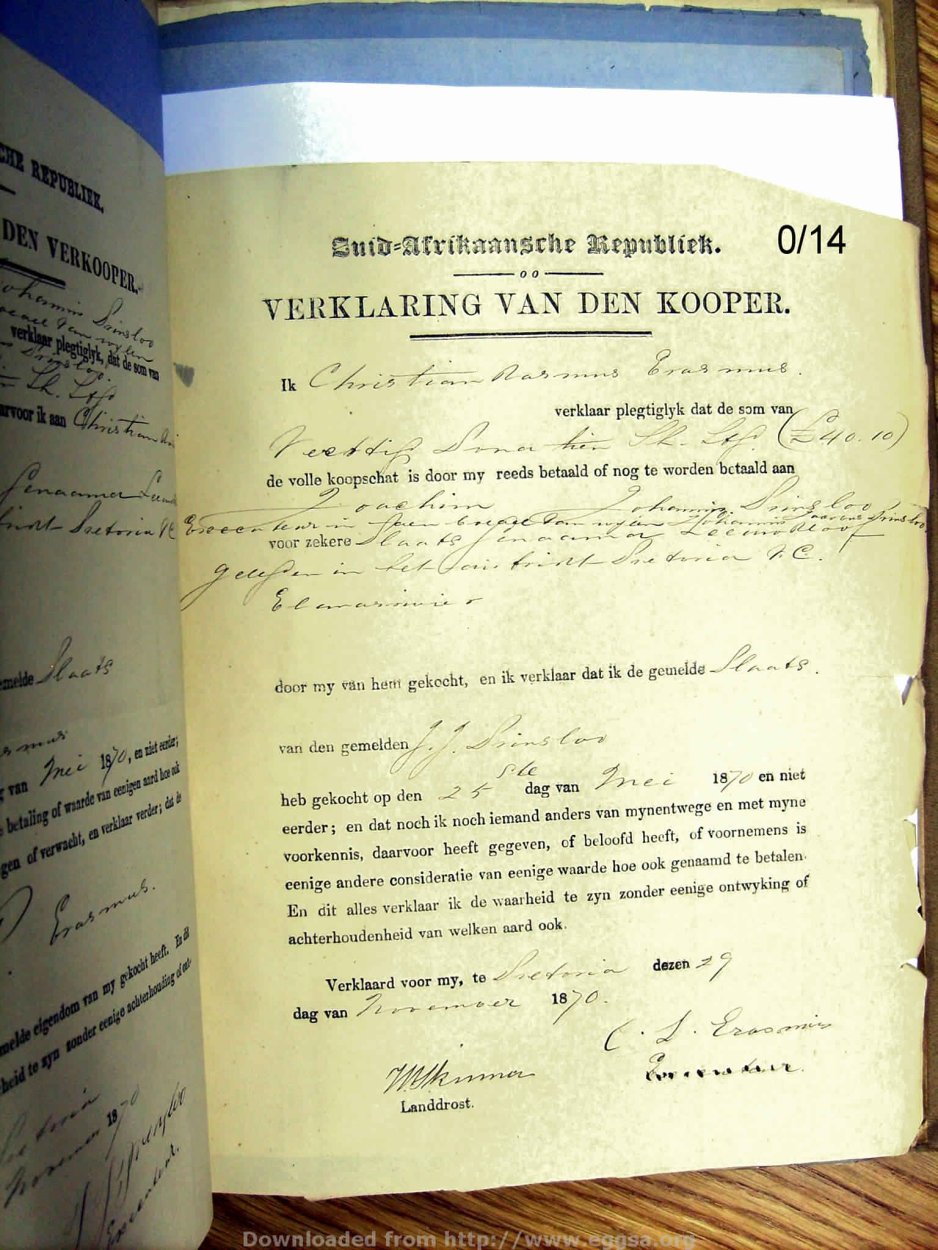 CHE REPUBLIEK.
DEN VERKOOPER.
verklaar plegtiglyk, dat de som van
arvoor ik aan Christian
genaamd
Pretoria
emelde Plaats
van Mei 1870, en niet eerder;
betaling of waarde van eenigen aard hoe ook
gen of verwacht, en verklaar verder; dat de
Erasmus.
melde eigendom van my gekocht heeft. En dit
heid te zyn zonder eenige achterhouding of ont-
November 1870
Suid-Afrikaansche Republiek. 0/14
VERKLARING VAN DEN KOOPER.
Ik Christian Rasmus Erasmus.
verklaar plegtiglyk dat de som van
Veertig Pond tien Sh. Stg. (£40.10)
de volle koopschat is door my reeds betaald of nog te worden betaald aan
Joachim Johannis Prinsloo
Executeur in den Boedel van wylen Johannis Prinsloo
voor zekere Plaats genaamd
gelegen in het district Pretoria N.C.
door my van hem gekocht, en ik verklaar dat ik de gemelde Plaats.
van den gemelden J. J. Prinsloo
heb gekocht op den 25ste dag van Mei 1870 en niet
eerder; en dat noch ik noch iemand anders van mynentwege en met myne
voorkennis, daarvoor heeft gegeven, of beloofd heeft, of voornemens is
eenige andere consideratie van eenige waarde hoe ook genaamd te betalen.
En dit alles verklaar ik de waarheid te zyn zonder eenige ontwyking of
achterhoudenheid van welken aard ook.
Verklaard voor my, te Pretoria dezen 29
dag van November 1870.
Erasmus
W Skinner
Landdrost.
Downloaded from http://www.eggsa.org